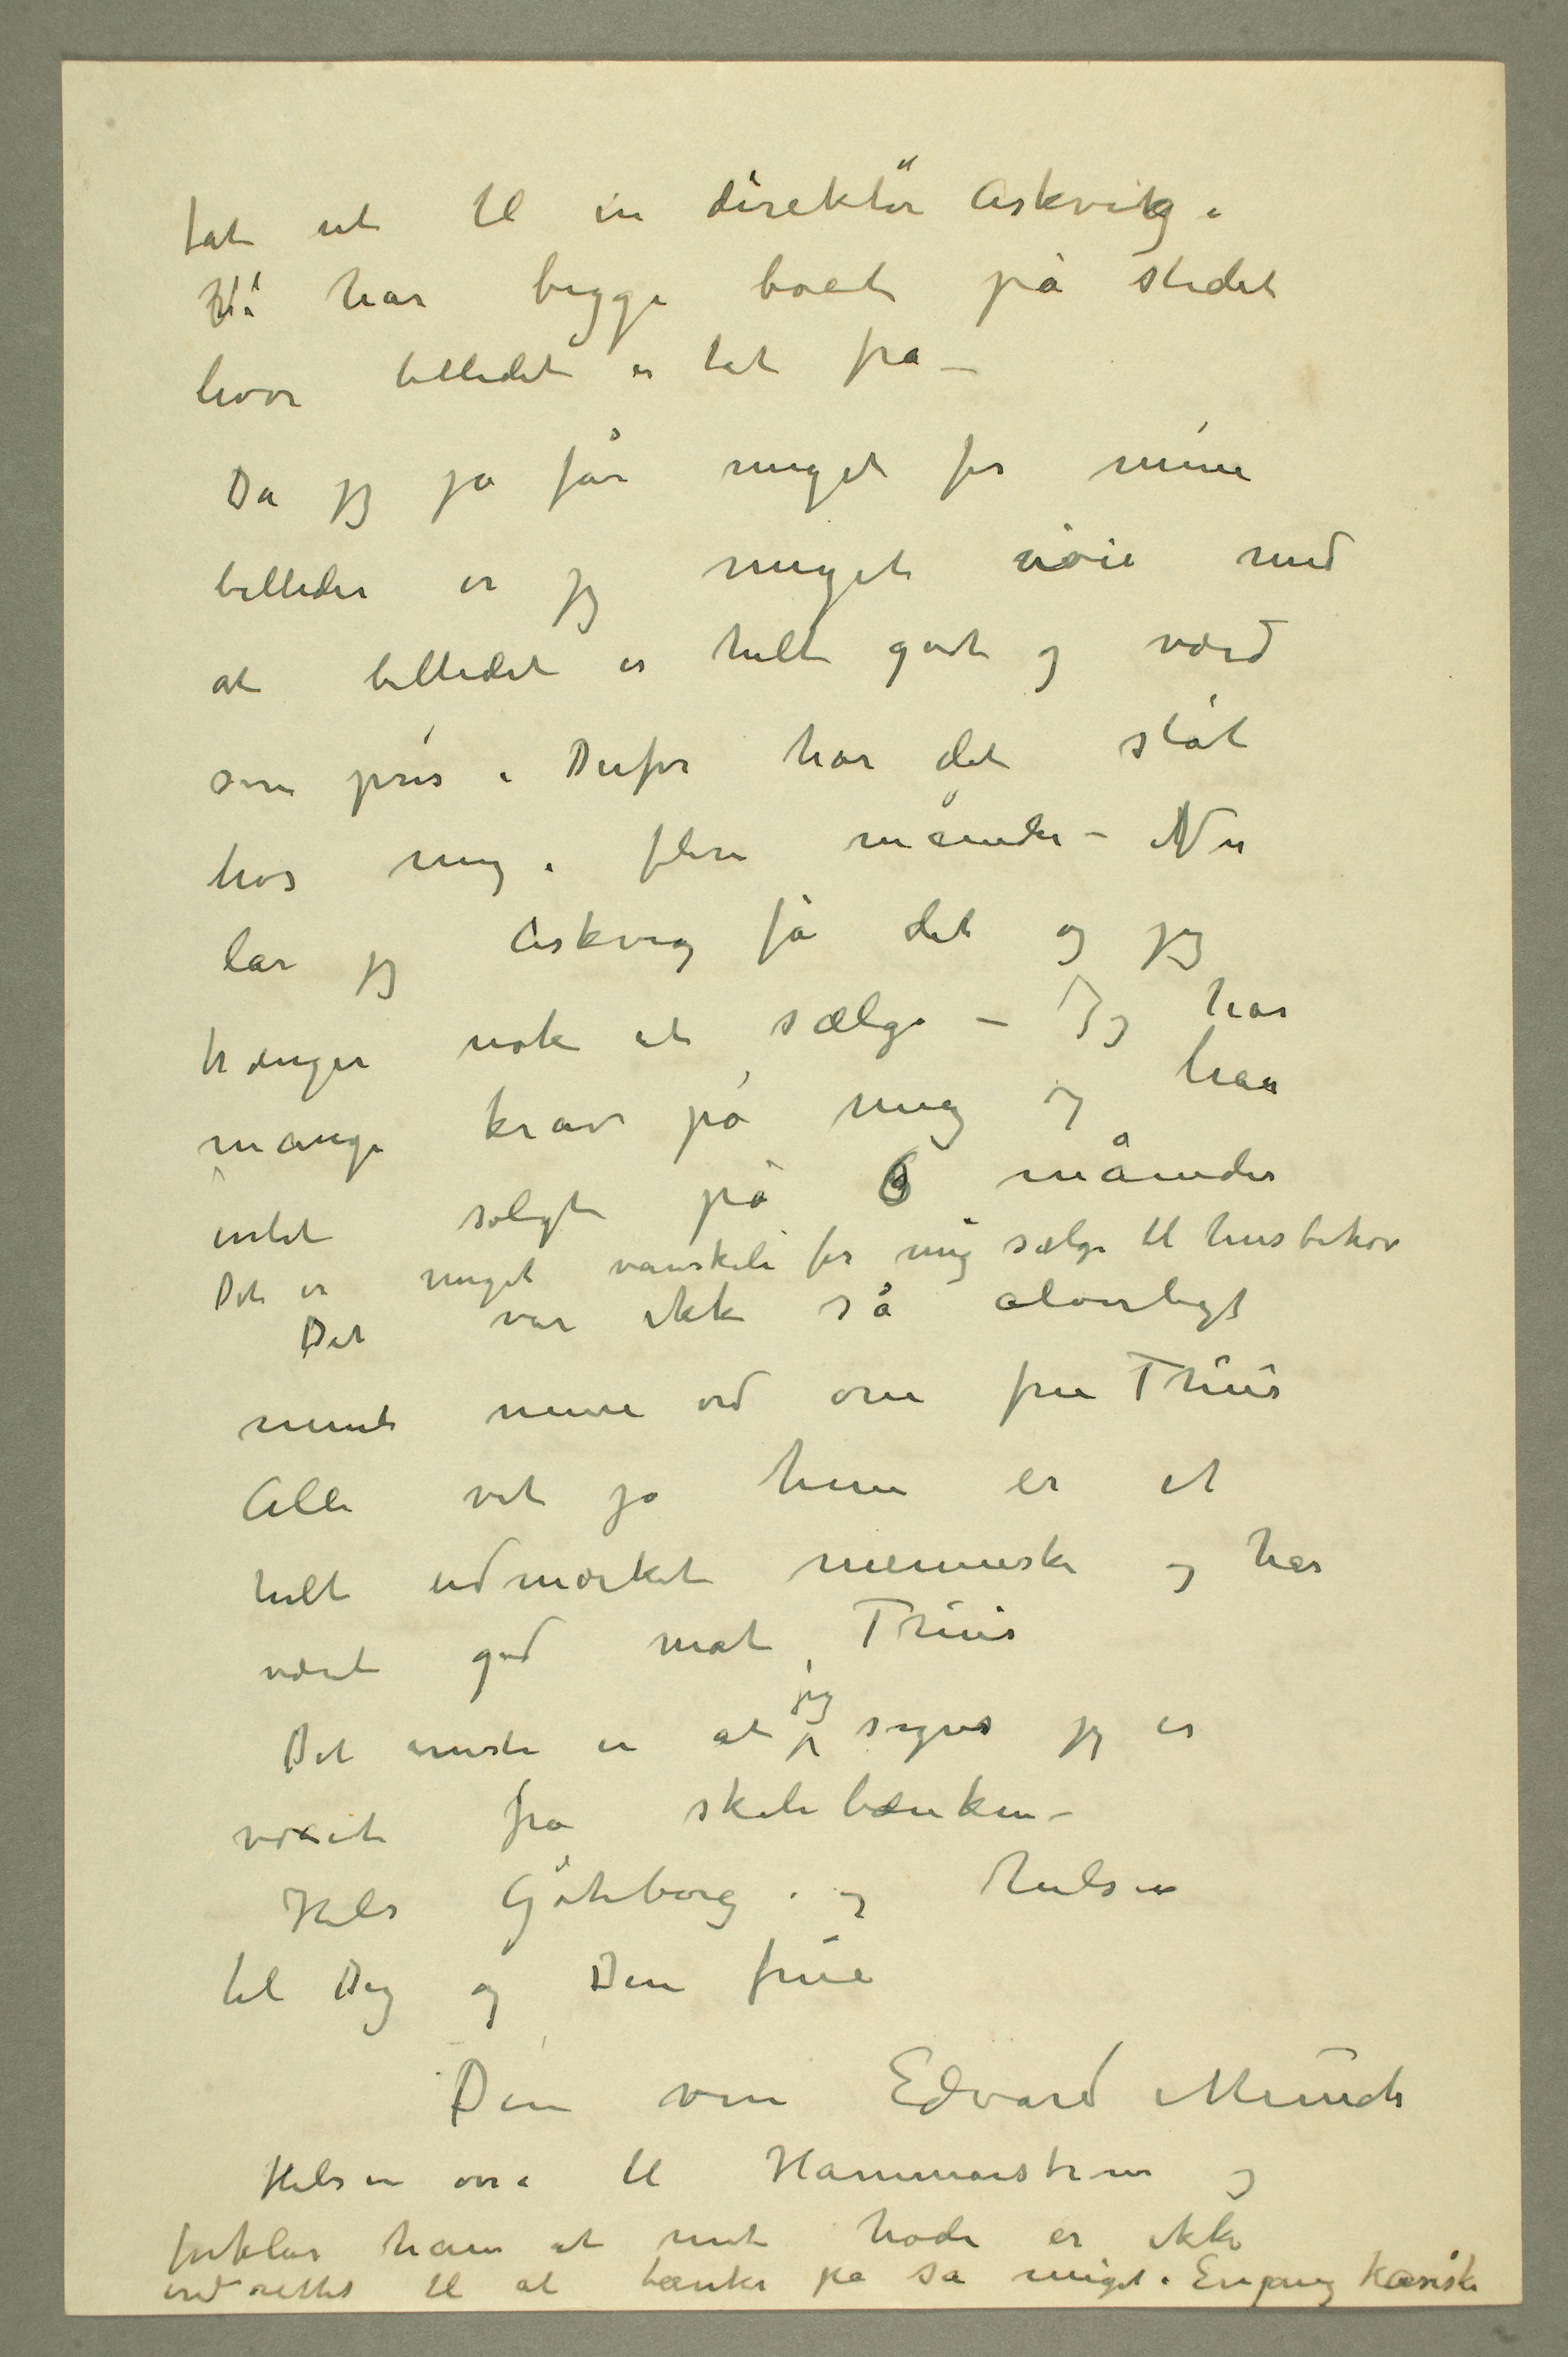 tat ut til en direktör Askvig.
Vi har begge boet på stedet
hvor billedet er tat fra –
Da jeg jo får meget for mine
billeder er jeg meget nöie med
at billedet er helt godt og værd
sin pris. Derfor har det stått
hos mig i flere måneder – Nu
lar jeg Askvig få det og jeg
trænger nok at sælge – Jeg har
mange krav på mig og har
intet solgt på 6 måneder
Det er meget vanskeli for mig sælge til husbehov
Det var ikke så alvorligt
mente mine ord om fru Thiis
Alle vet jo hun er et
helt udmærket menneske og har
været god mot Thiis
Det eneste er at jeg synes jeg er
voxet fra skolebænken –
Hils Göteborg. og hilsen
til Dig og Din frue
Din ven Edvard Munch
Hilsen også til Hammarstrøm og
forklar ham at mit hode er ikke
indrettet til at tænke på så meget. Engang kanske